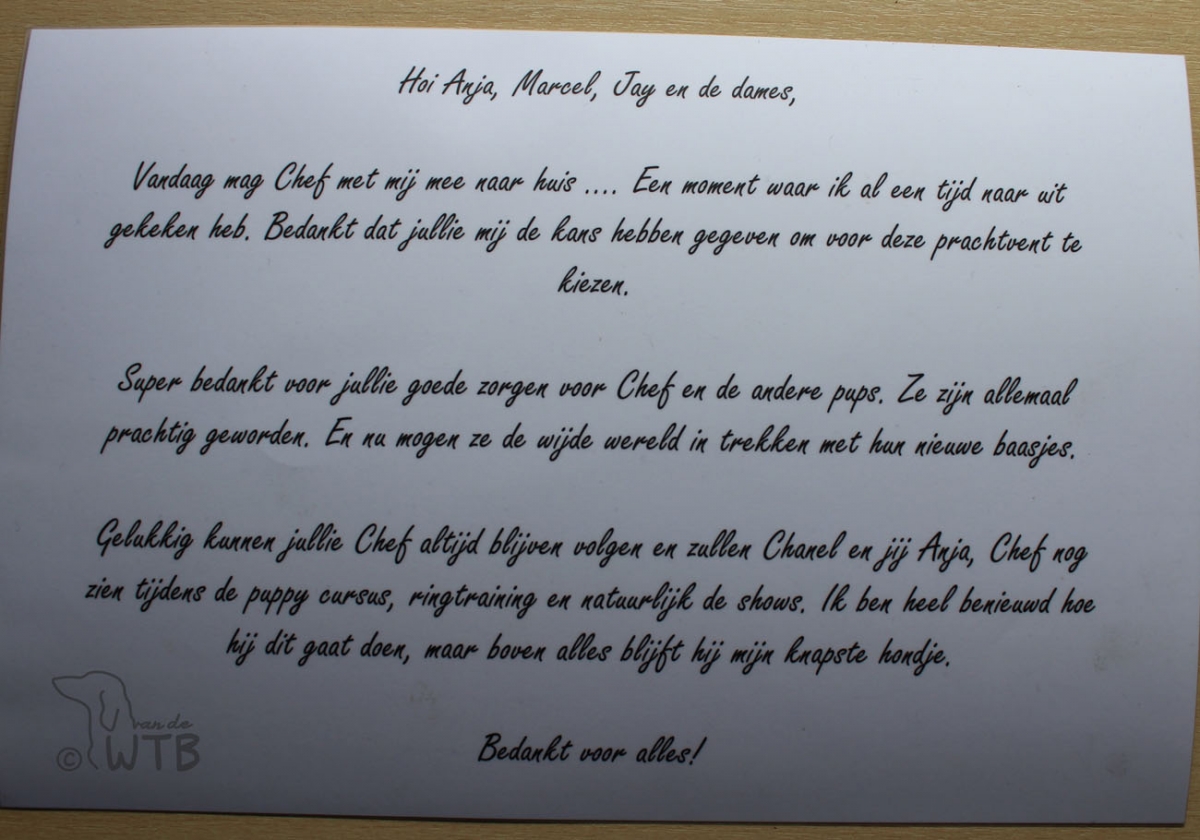 Hoi Anja, Marcel, Jay en de dames,
Vandaag mag Chef met mij mee naar huis .... Een moment waar ik al een tijd naar uit
gekeken heb. Bedankt dat jullie mij de kans hebben gegeven om voor deze prachtvent te
kiezen.
Super bedankt voor jullie goede zorgen voor Chef en de andere pups. Ze zijn allemaal
prachtig geworden. En nu mogen ze de wijde wereld in trekken met hun nieuwe baasjes.
Gelukkig kunnen jullie Chef altijd blijven volgen en zullen Chanel en jij Anja, Chef nog
zien tijdens de puppy cursus, ringtraining en natuurlijk de shows. Ik ben heel benieuwd hoe
hij dit gaat doen, maar boven alles blijft hij mijn knapste hondje.
Bedankt voor alles!
van de
© WTB